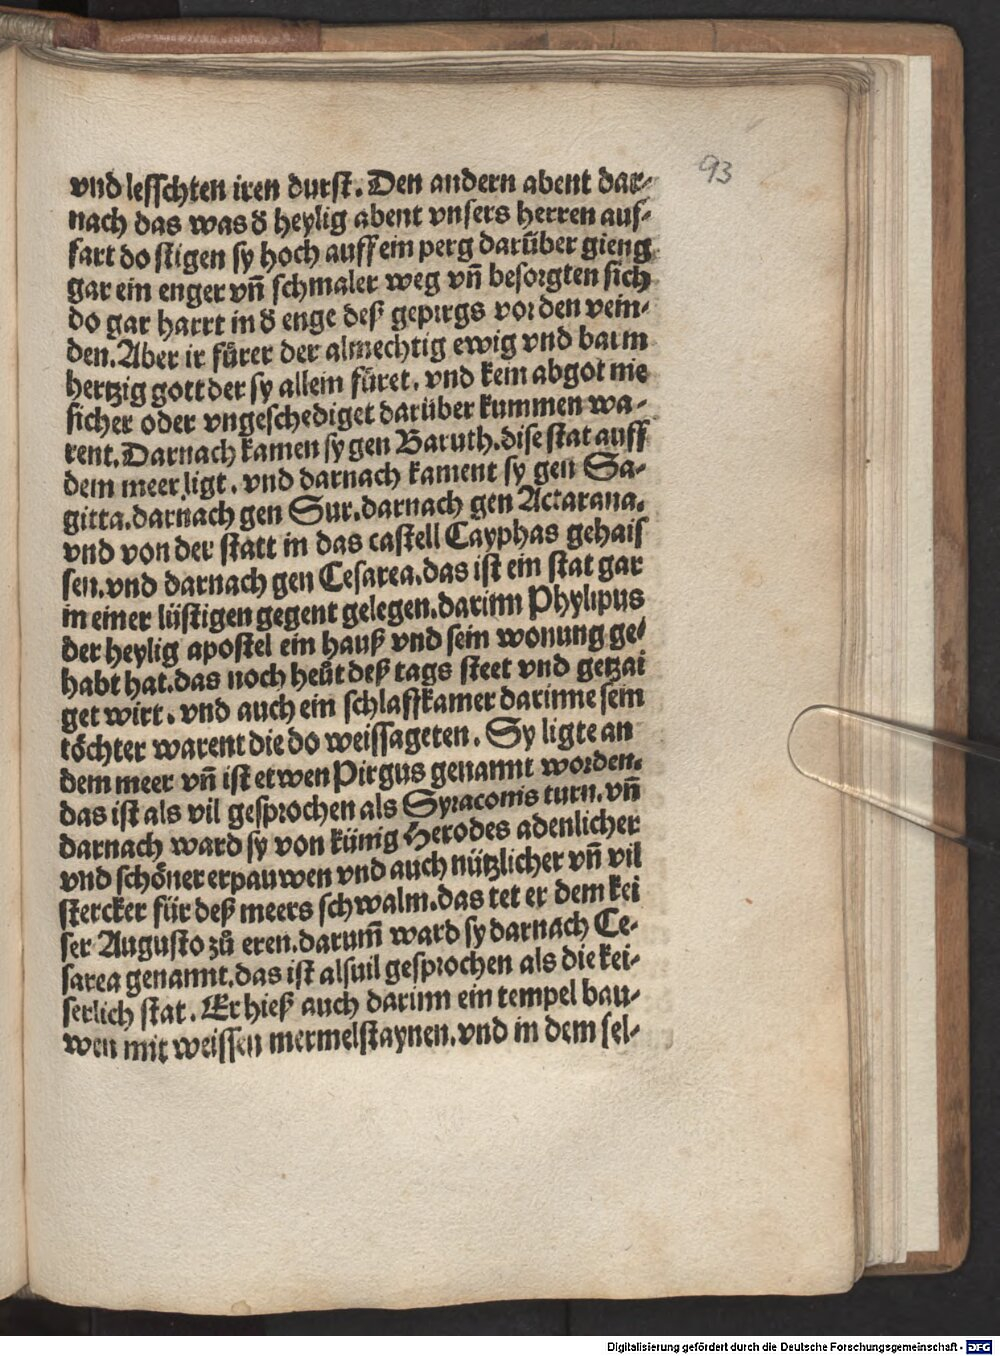 93
vnd lefſchten iren durſt. Den andern abent dar-
nach das was d̕ heylig abent vnſers herren auf-
fart do ſtigen ſy hoch auff ein perg darüber gieng
gar ein enger vn̄ ſchmaler weg vn̄ beſorgten ſich
do gar harrt in d̕ enge deß gepirgs vor den vein-
den. Aber ir fürer der almechtig ewig vnd barm
hertzig gott der ſy allein füret. vnd kein abgot nie
ſicher oder vngeſchediget darüber kummen wa-
rent. Darnach kamen ſy gen Baruth. diſe ſtat auff
dem meer ligt. vnd darnach kament ſy gen Sa-
gitta. darnach gen Sur. darnach gen Actarana.
vnd von der ſtatt in das caſtell Cayphas gehaiſ
ſen. vnd darnach gen Ceſarea. das iſt ein ſtat gar
in einer lüſtigen gegent gelegen. darinn Phylipus
der heylig apoſtel ein hauß vnd ſein wonung ge-
habt hat. das noch heüt deß tags ſteet vnd getzai
get wirt. vnd auch ein ſchlaffkamer darinne ſein
töchter warent die do weiſſageten. Sy ligte an
dem meer vn̄ iſt etwen Pirgus genannt worden.
das iſt als vil geſprochen als Syraconis turn. vn̄
darnach ward ſy von künig Herodes adenlicher
vnd ſchöner erpauwen vnd auch nützlicher vn̄ vil
ſtercker für deß meers ſchwalm. das tet er dem kei
ſer Auguſto zů eren. darum̄ ward ſy darnach Ce-
ſarea genannt. das iſt alſuil geſprochen als die kei-
ſerlich ſtat. Er hieß auch darinn ein tempel bau-
wen mit weiſſen mermelſtaynen. vnd in dem ſel-
Digitalisierung gefördert durch die Deutsche Forschungsgemeinschaft - DFG